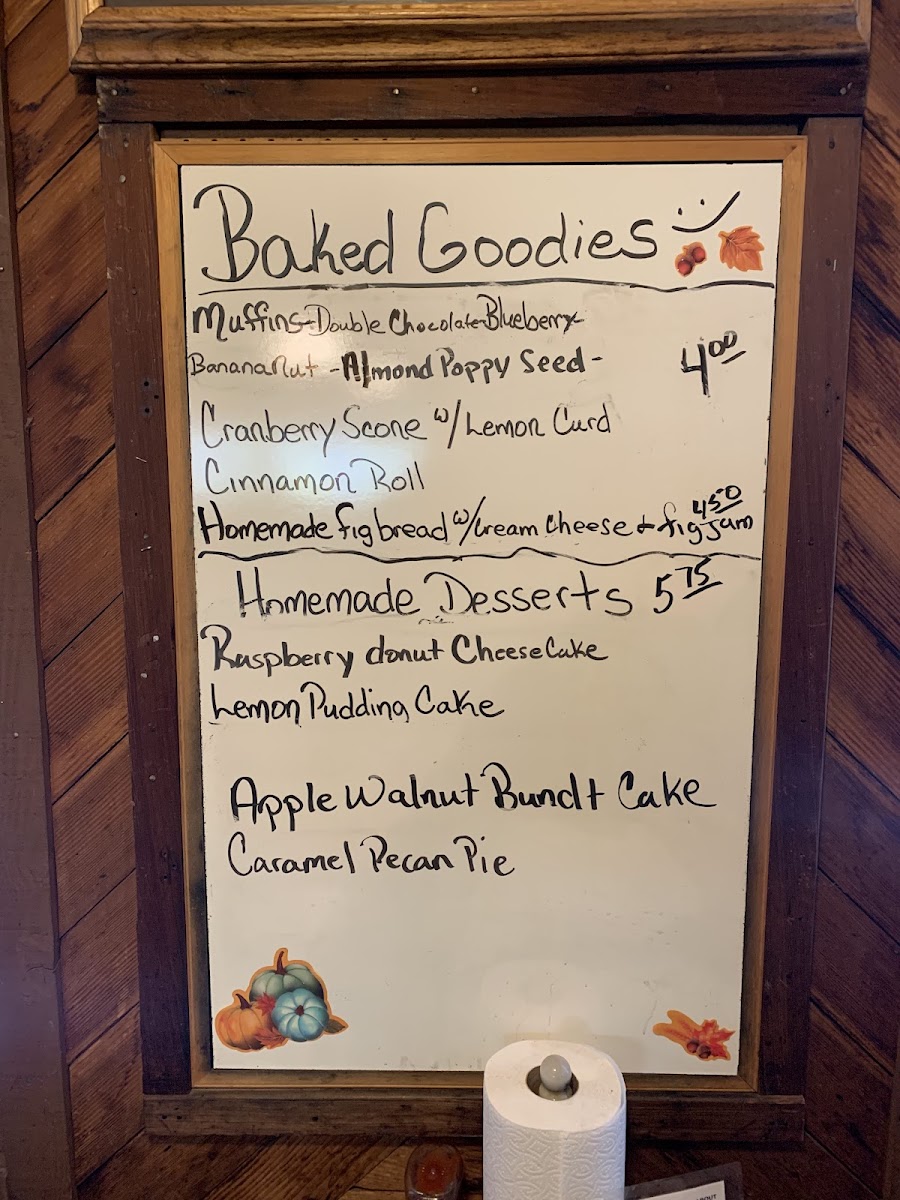 Baked Goodies
Muffins-Double Chocolate-Blueberry-
Banana Nut - Almond Poppy Seed - 4.00
Cranberry Scone w/ Lemon Curd
Cinnamon Roll
4.50
Homemade fig bread w/ cream cheese & fig jam
Homemade Desserts 5.75
Raspberry donut CheeseCake
Lemon Pudding Cake
Apple Walnut Bundt Cake
Caramel Pecan Pie